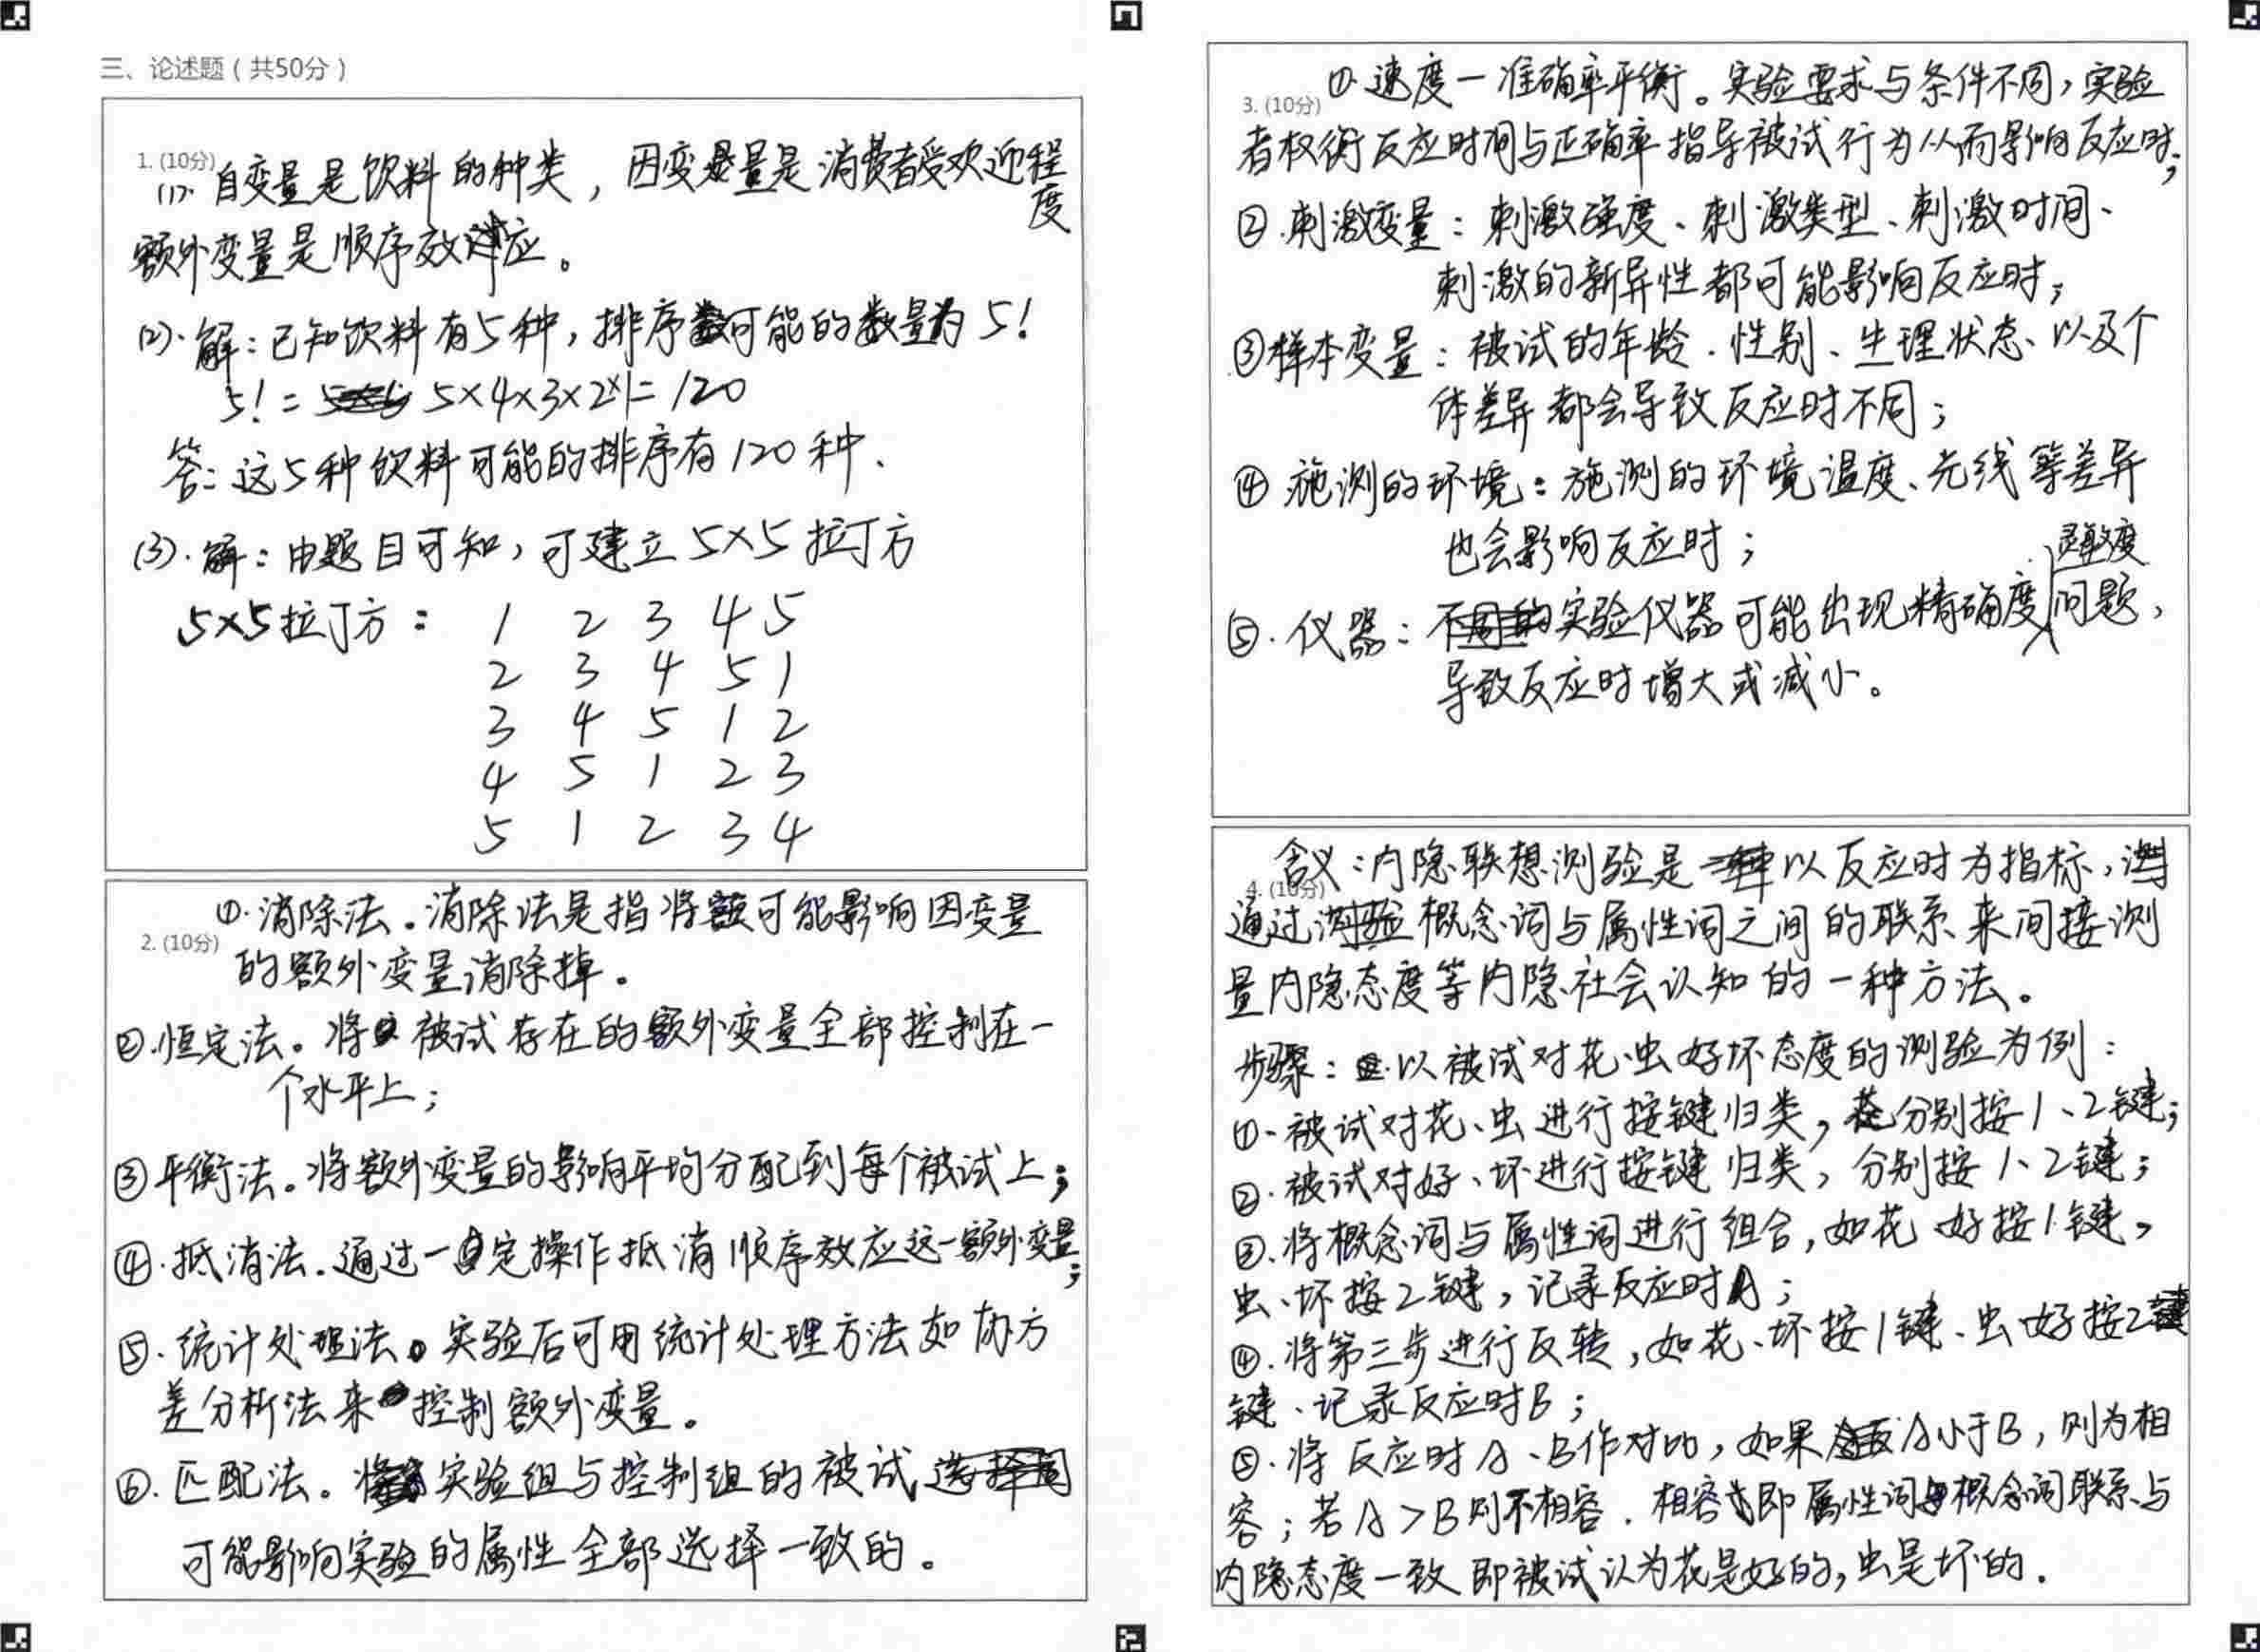 三、论述题（共50分）
1. (10分)
(1). 自变量是饮料的种类，因变量是消费者受欢迎程度
额外变量是顺序效应。
(2). 解：已知饮料有5种，排序可能的数量为 5！
5！= 5×4×3×2×1=120
答：这5种饮料可能的排序有120种.
(3). 解：由题目可知，可建立5×5拉丁方
5×5拉丁方：
1 2 3 4 5
2 3 4 5 1
3 4 5 1 2
4 5 1 2 3
5 1 2 3 4
2. (10分)
①. 消除法。消除法是指将可能影响因变量
的额外变量消除掉。
②.恒定法。将被试存在的额外变量全部控制在一
个水平上；
③平衡法。将额外变量的影响平均分配到每个被试上；
④. 抵消法. 通过一定操作抵消顺序效应这一额外变量；
⑤. 统计处理法。实验后可用统计处理方法如协方
差分析法来控制额外变量。
⑥. 匹配法。实验组与控制组的被试
可能影响实验的属性全部选择一致的。
3. (10分)
①. 速度－准确率平衡。实验要求与条件不同，实验
者权衡反应时间与正确率指导被试行为从而影响反应时；
②.刺激变量：刺激强度、刺激类型、刺激时间、
刺激的新异性都可能影响反应时；
③样本变量：被试的年龄.性别、生理状态、以及个
体差异都会导致反应时不同；
④施测的环境：施测的环境温度、光线等差异
也会影响反应时；
⑤. 仪器：实验仪器可能出现精确度、灵敏度问题，
导致反应时增大或减小。
4. (10分)
含义：内隐联想测验是以反应时为指标，
通过概念词与属性词之间的联系来间接测
量内隐态度等内隐社会认知的一种方法。
步骤：以被试对花、虫好坏态度的测验为例：
①. 被试对花、虫进行按键归类，分别按1、2键；
②. 被试对好、坏进行按键归类，分别按1、2键；
③. 将概念词与属性词进行组合，如花、好按1键，
虫、坏按2键，记录反应时A；
④. 将第三步进行反转，如花、坏按1键、虫、好按2
键、记录反应时B；
⑤. 将反应时A、B作对比，如果A小于B，则为相
容；若A＞B则不相容. 相容即属性词与概念词联系与
内隐态度一致即被试认为花是好的，虫是坏的.